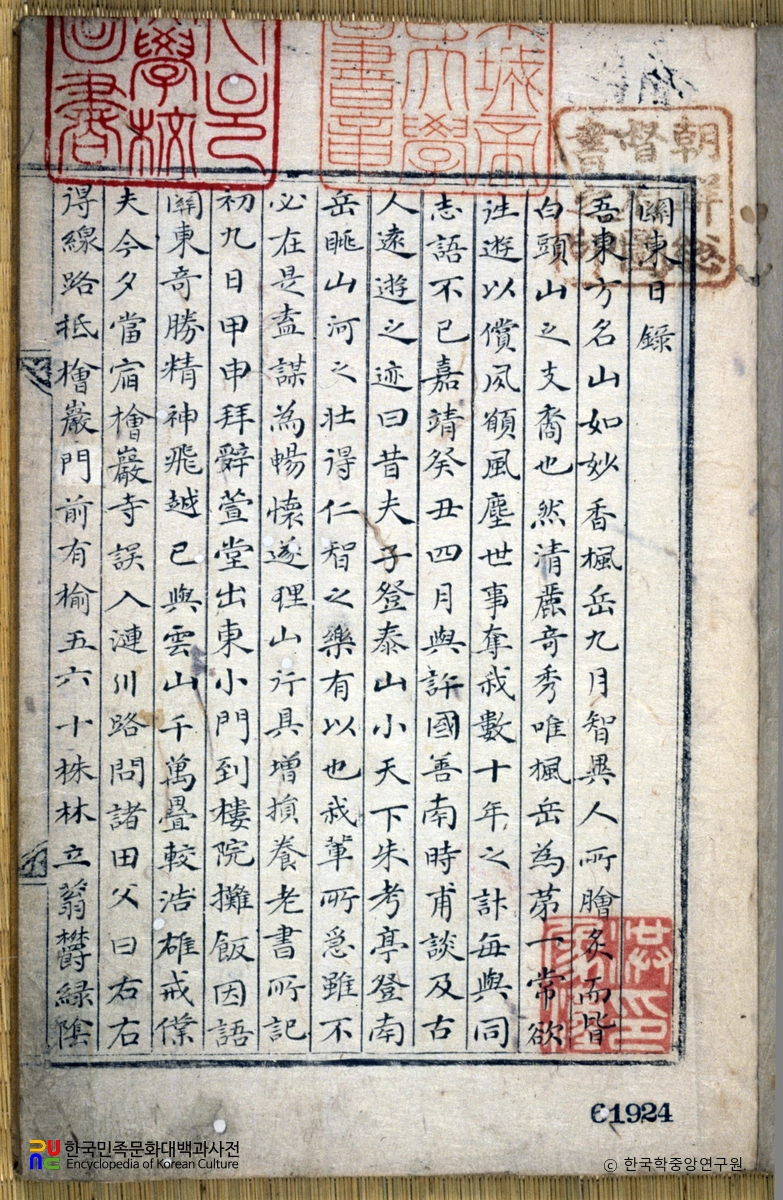 關東日錄
吾東方名山如妙香楓岳九月智異人所膾炙而皆
白頭山之支裔也然淸麗奇秀唯楓岳爲第一常欲
一遊以償夙願風塵世事奪我數十年之計每與同
志語不已嘉靖癸丑四月與許國善南時甫談及古
人遠遊之迹曰昔夫子登泰山小天下朱考亭登南
岳眺山河之壯得仁智之樂有以也我輩所急雖不
必在是盍謀爲暢懷遂理山行具增損養老書所記
初九日甲申拜辭萱堂出東小門到樓院攤飯因語
關東奇勝精神飛越已與雲山千萬疊較浩雄戒僕
夫今夕當宿檜巖寺誤入漣川路問諸田父曰右右
得線路抵檜巖門前有楡五六十株林立蓊欝綠陰
朝鮮總督府圖書之印
61924
한국민족문화대백과사전
Encyclopedia of Korean Culture
ⓒ 한국학중앙연구원